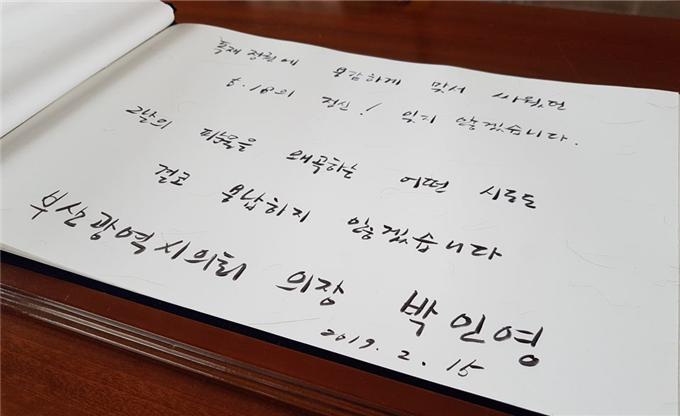 독재 정권에 용감하게 맞서 싸웠던
5.18의 정신! 잊지 않겠습니다.
그날의 피눈물을 왜곡하는 어떤 시도도
결코 용납하지 않겠습니다
부산광역시의회 의장 박인영
2019. 2. 15